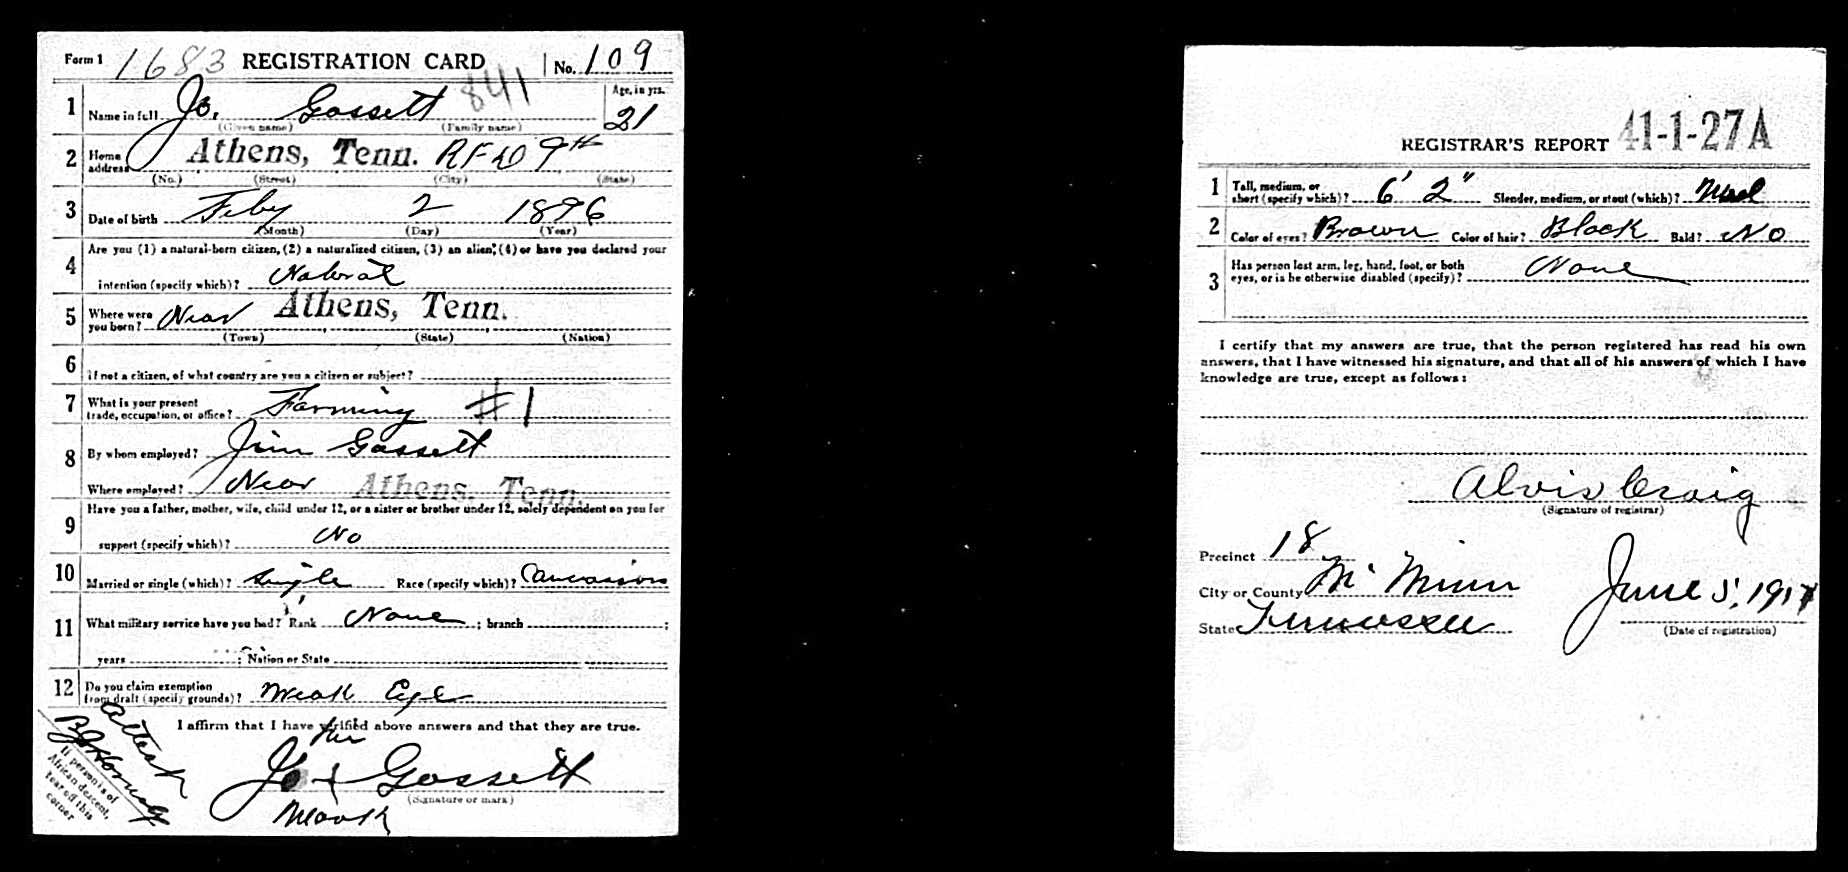 Form 1 1683 REGISTRATION CARD No. 109
841
1 Name in full Jo. Gossett Age, in yrs. 21
(Given name) (Family name)
2 Home address Athens, Tenn. RFD 9th
(No.) (Street) (City) (State)
3 Date of birth Feby 2 1896
(Month) (Day) (Year)
4 Are you (1) a natural-born citizen, (2) a naturalized citizen, (3) an alien, (4) or have you declared your
intention (specify which)? Natural
5 Where were you born? Near Athens, Tenn.
(Town) (State) (Nation)
6 If not a citizen, of what country are you a citizen or subject?
7 What is your present trade, occupation, or office? Farming #1
8 By whom employed? Jim Gossett
Where employed? Near Athens, Tenn.
9 Have you a father, mother, wife, child under 12, or a sister or brother under 12, solely dependent on you for
support (specify which)? No
10 Married or single (which)? Single Race (specify which)? Caucasion
11 What military service have you had? Rank None ; branch ;
years ; Nation or State
12 Do you claim exemption from draft (specify grounds)? Weak Eye
I affirm that I have verified above answers and that they are true.
his
Jo + Gossett
(Signature or mark)
mark
Attest
If person is of
African descent,
tear off this
corner
REGISTRAR'S REPORT 41-1-27A
1 Tall, medium, or short (specify which)? 6' 2" Slender, medium, or stout (which)? Med
2 Color of eyes? Brown Color of hair? Black Bald? No
3 Has person lost arm, leg, hand, foot, or both eyes, or is he otherwise disabled (specify)? None
I certify that my answers are true, that the person registered has read his own
answers, that I have witnessed his signature, and that all of his answers of which I have
knowledge are true, except as follows:
Alvis Craig
(Signature of registrar)
Precinct 18
City or County Mc Minn June 5, 1917
State Tennessee (Date of registration)